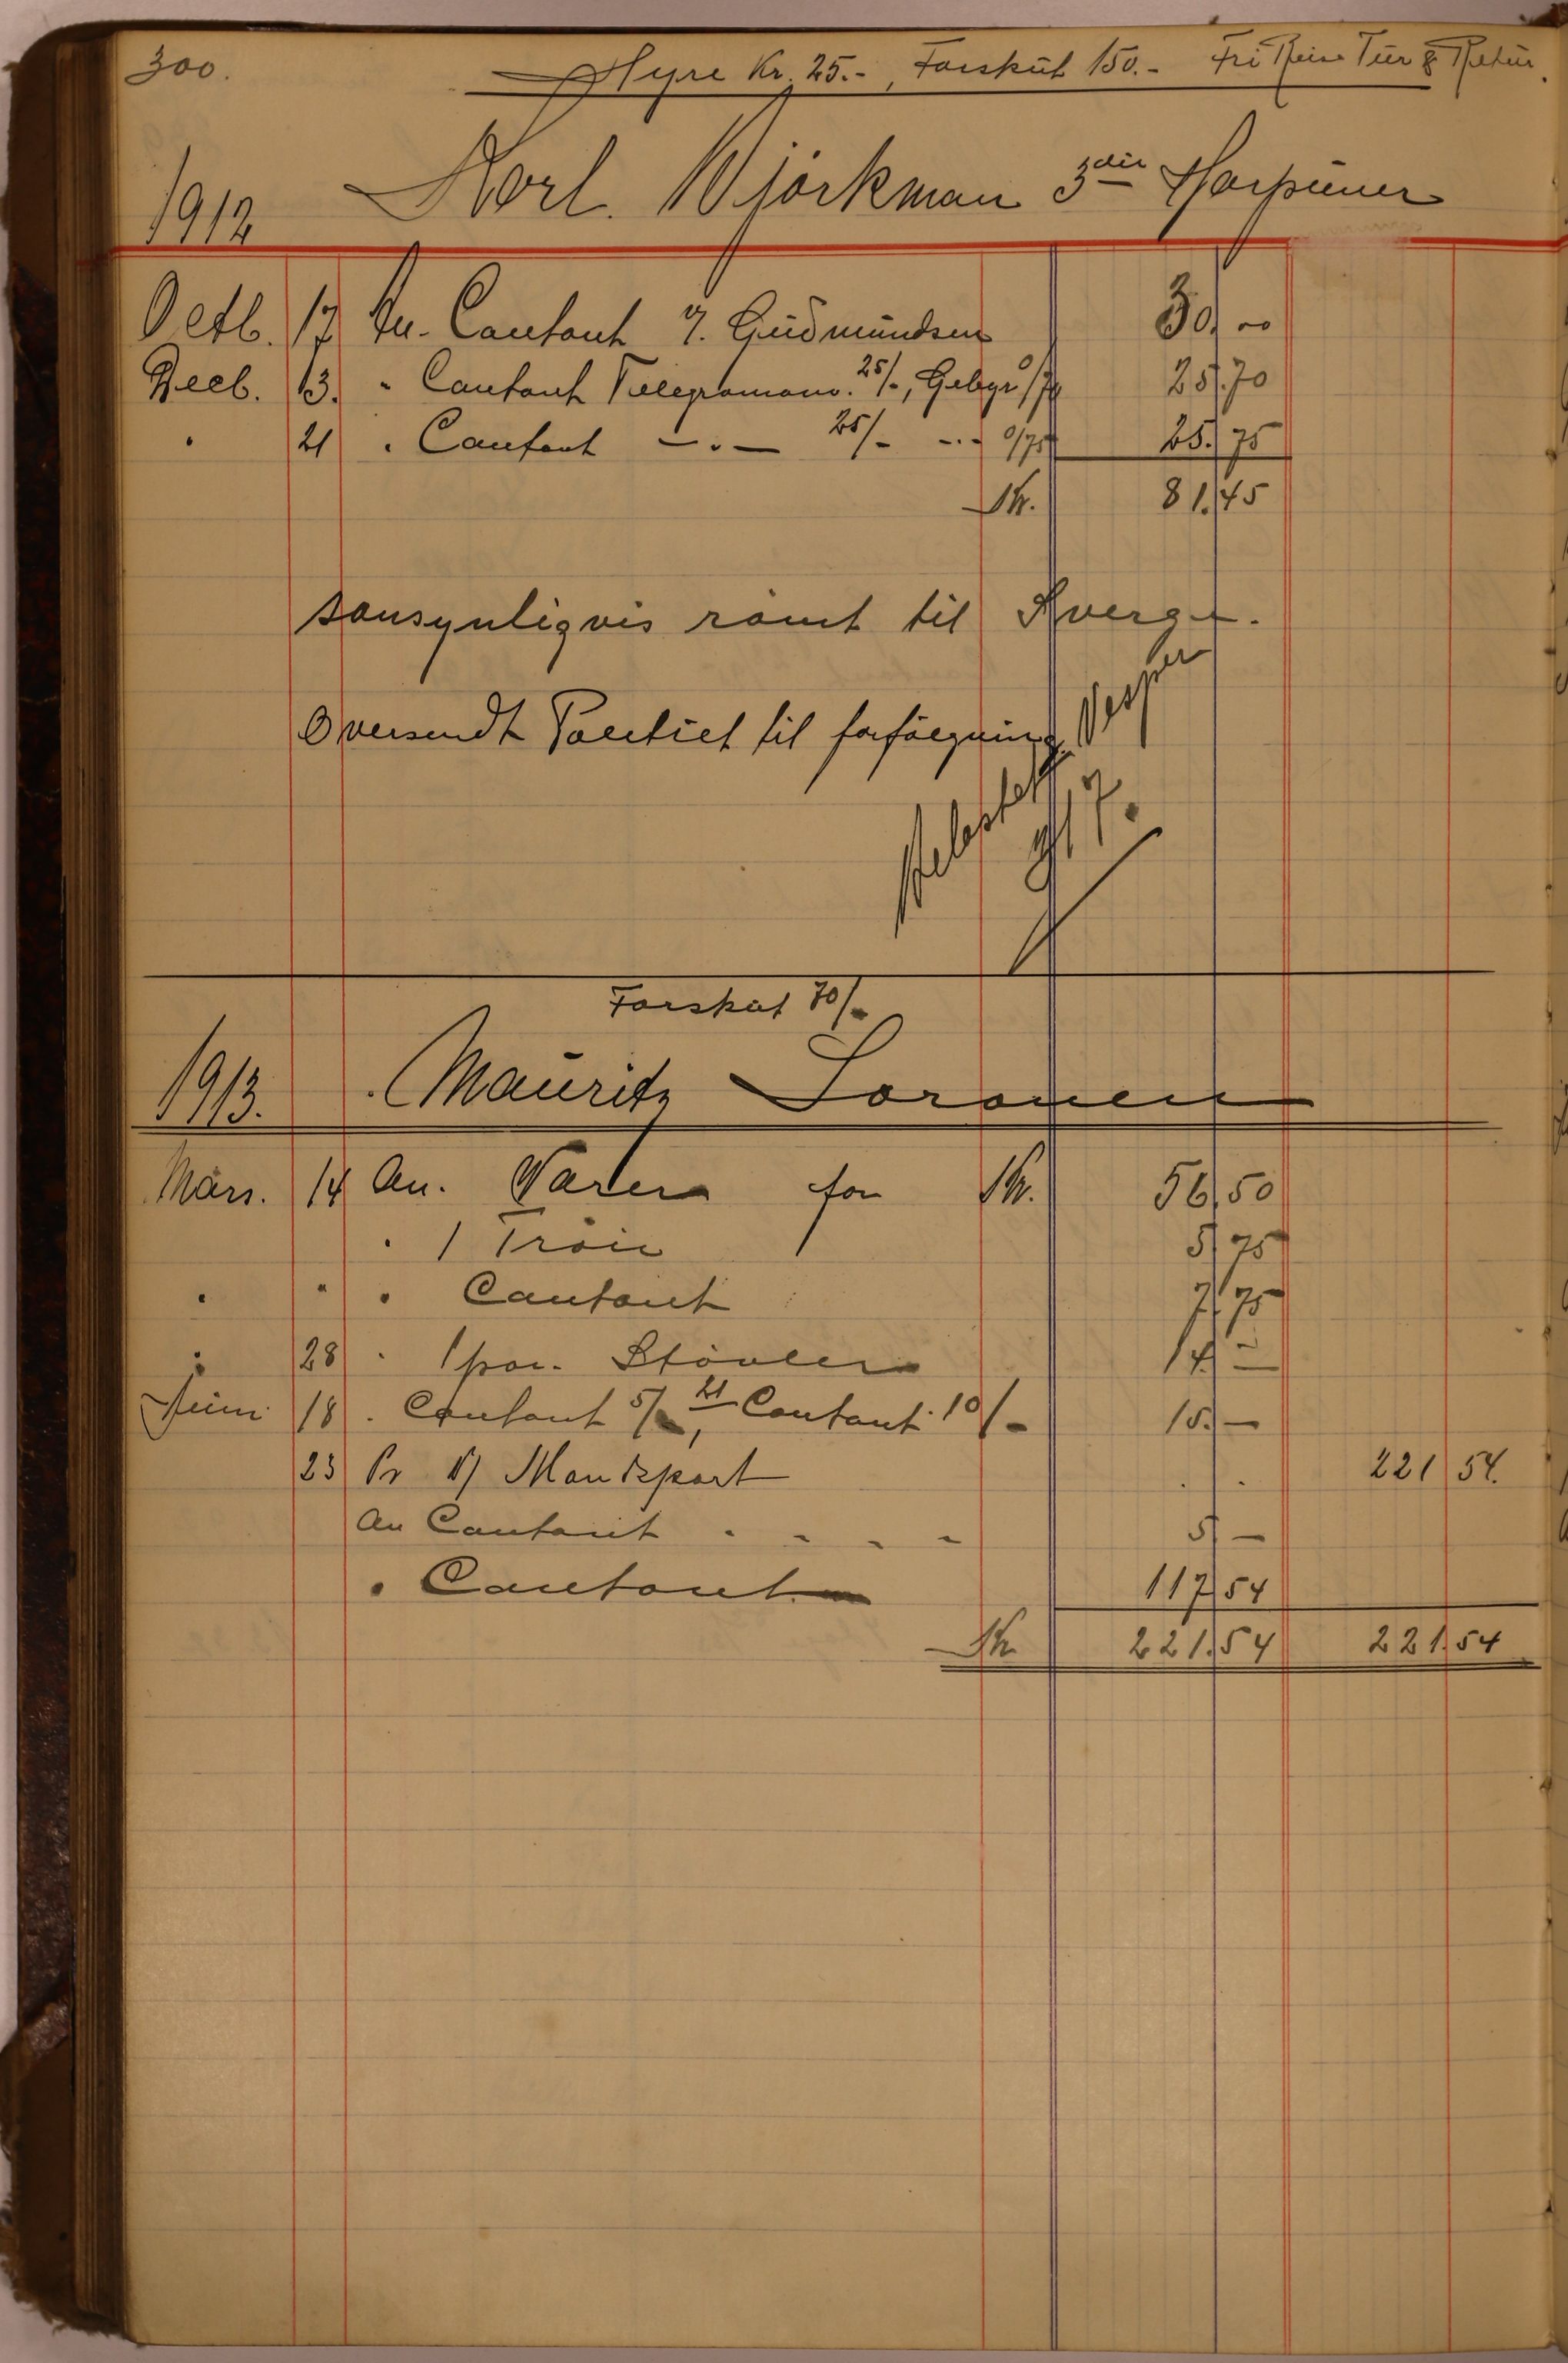 300. Hyre Kr. 25.-, Forskût 150.- Fri Reise Tür & Retür.
1912 Karl. Wjörkman 3die Harpüner
Octb. 17 An. Contant J. Güdmündsen 30. 00
Decb. 13. " Contant Telegramanv. 25/-, Gebyr 0/70 25. 70
" 21 " Contant -"- 25/- -"- 0/75 25. 75
Kr. 81. 45
sansynligvis römt til Sverge.
Oversendt Politiet til forfölgning
9/7.
Forskût 70/-
1913. Mauritz Soronen
Mars. 14 An. Varer for Kr. 56, 50
" 1 Tröie 5, 75
" " " Contant 7, 75
" 28 " 1 par. Stövler 14, -
Juni 18 " Contant 5/-, 21 Contant. 10/- 15. -
23 Pr D/ Mandspart 221 54.
An Contant " " " " 5, -
" Contant. 117, 54
Kr 221. 54 221. 54